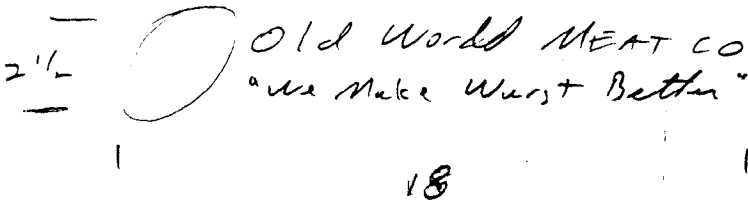 Old World MEAT CO
2 1/2
"We Make Wurst Better"
18